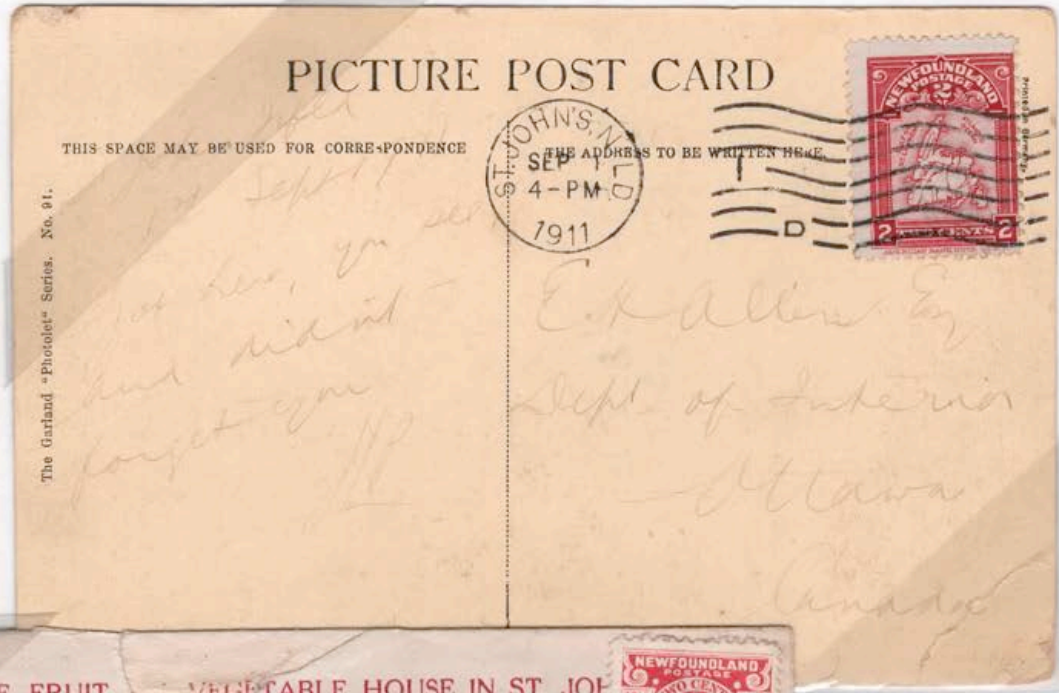 PICTURE POST CARD
THIS SPACE MAY BE USED FOR CORRESPONDENCE
THE ADDRESS TO BE WRITTEN HERE.
ST. JOHN'S, N'F'LD
SEP 1
4-PM
1911
T
D
NEWFOUNDLAND
POSTAGE
2
2 CENTS 2
Printed in Germany
The Garland "Photolet" Series. No. 91.
Sept 1
here, you see
and didn't
forget you
E. Allen Esq
Dept of Interior
Ottawa
Canada
E FRUIT
VEGETABLE HOUSE IN ST. JOH
NEWFOUNDLAND
POSTAGE
TWO CENTS